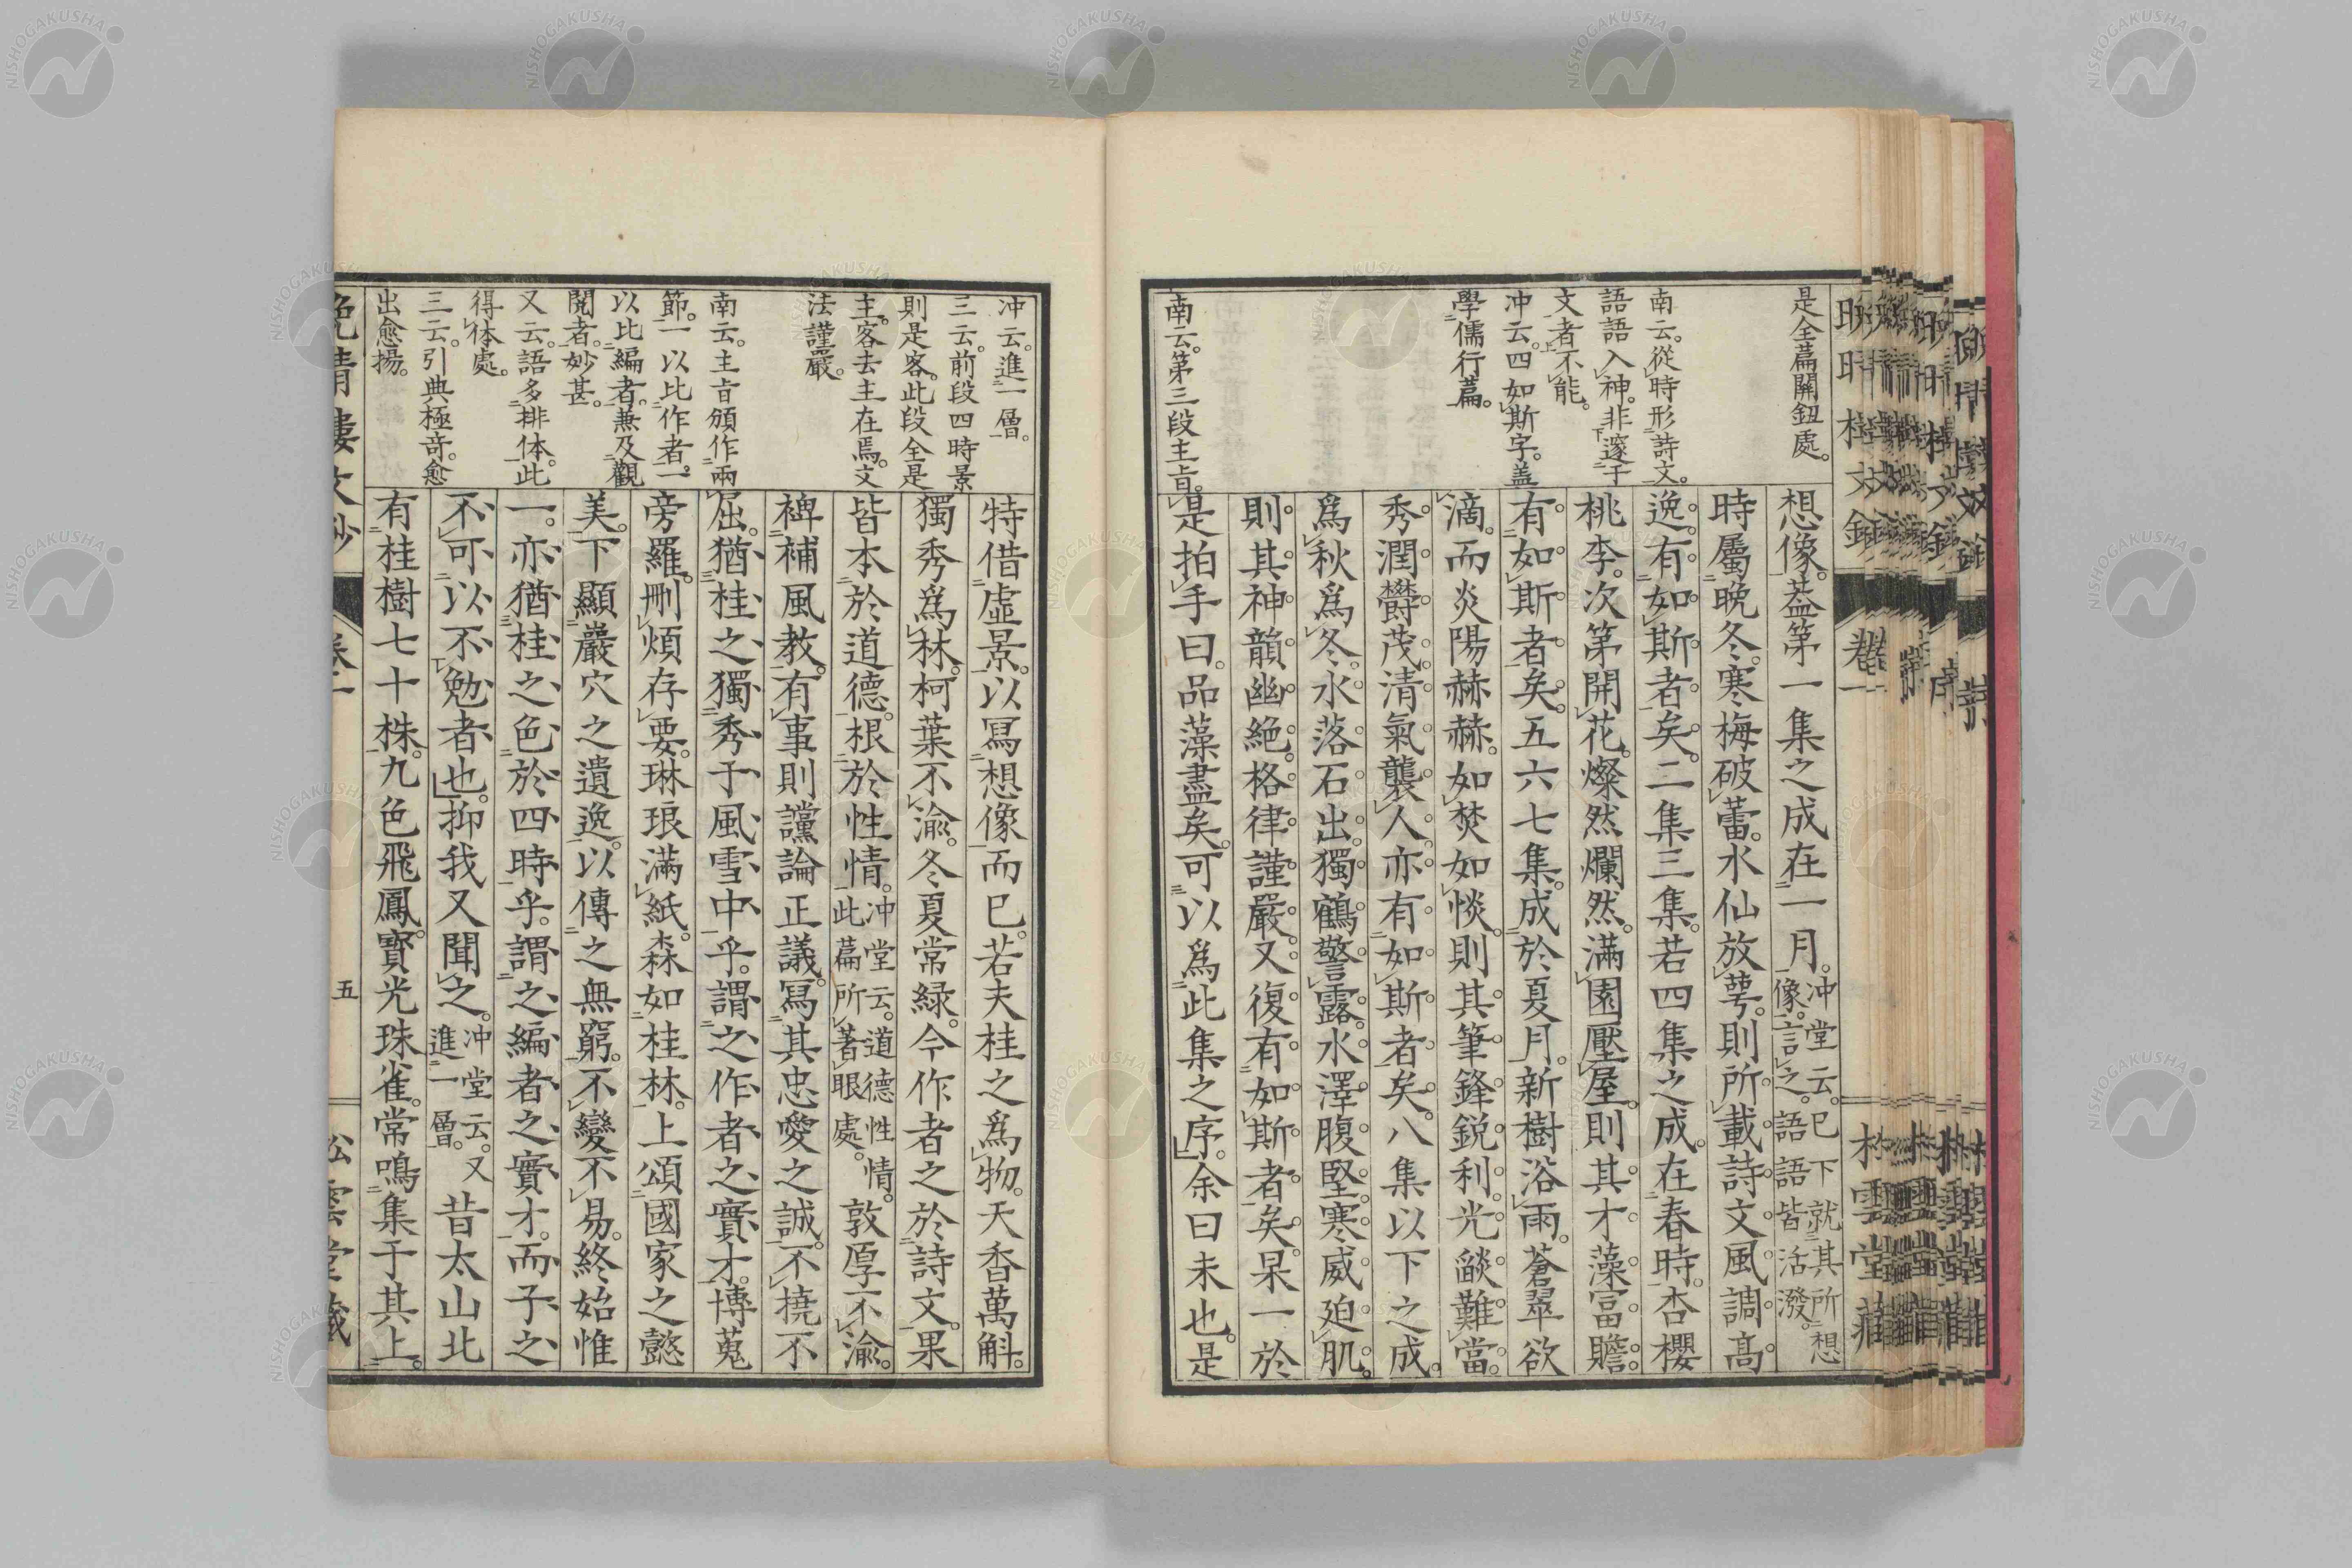 是全篇關鈕處。
南云。從時形詩文。
語語入神。非邃于
文者不能。
冲云。四如斯字。盖
學儒行篇。
南云。第三段主旨。
想像。葢第一集之成在一月。冲堂云。已下就其所想
像。言之。語語皆活潑。
時屬晩冬。寒梅破蕾。水仙放蕚。則所載詩文。風調高
逸。有如斯者矣。二集三集。若四集之成。在春時。杏櫻
桃李。次第開花。燦然爛然。滿園壓屋。則其才藻富贍。
有如斯者矣。五六七集。成於夏月。新樹浴雨。蒼翠欲
滴。而炎陽赫赫。如焚如惔。則其筆鋒鋭利。光燄難當。
秀潤欝茂。清氣襲人。亦有如斯者矣。八集以下之成。
爲秋爲冬。水落石出。獨鶴警露。水澤腹堅。寒威廹肌。
則其神韻幽絶。格律謹嚴。又復有如斯者矣。杲一於
是拍手曰。品藻盡矣。可以爲此集之序。余曰未也。是
冲云。進一層。
三云。前段四時景
則是客。此段全是
主。客去主在焉。文
法謹嚴。
南云。主旨頒作兩
節。一以比作者。一
以比編者。兼及觀
閱者。妙甚。
又云。語多排体。此
得体處。
三云。引典極奇。愈
出愈揚。
特借虛景。以冩想像而已。若夫桂之爲物。天香萬斛。
獨秀爲林。柯葉不渝。冬夏常緑。今作者之於詩文。果
皆本於道德。根於性情。冲堂云。道德性情。
此篇所著眼處。敦厚不渝。
裨補風教。有事則讜論正議。冩其忠愛之誠。不撓不
屈。猶桂之獨秀于風雪中乎。謂之作者之實才。博蒐
旁羅。刪煩存要。琳琅滿紙。森如桂林。上頌國家之懿
美。下顯巖穴之遺逸。以傳之無窮。不變不易。終始惟
一。亦猶桂之色於四時乎。謂之編者之實才。而子之
不可以不勉者也。抑我又聞之。冲堂云。又
進一層。昔太山北
有桂樹七十株。九色飛鳳。寳光珠雀。常鳴集于其上。
晩晴樓文鈔
卷二
五
松雲堂藏